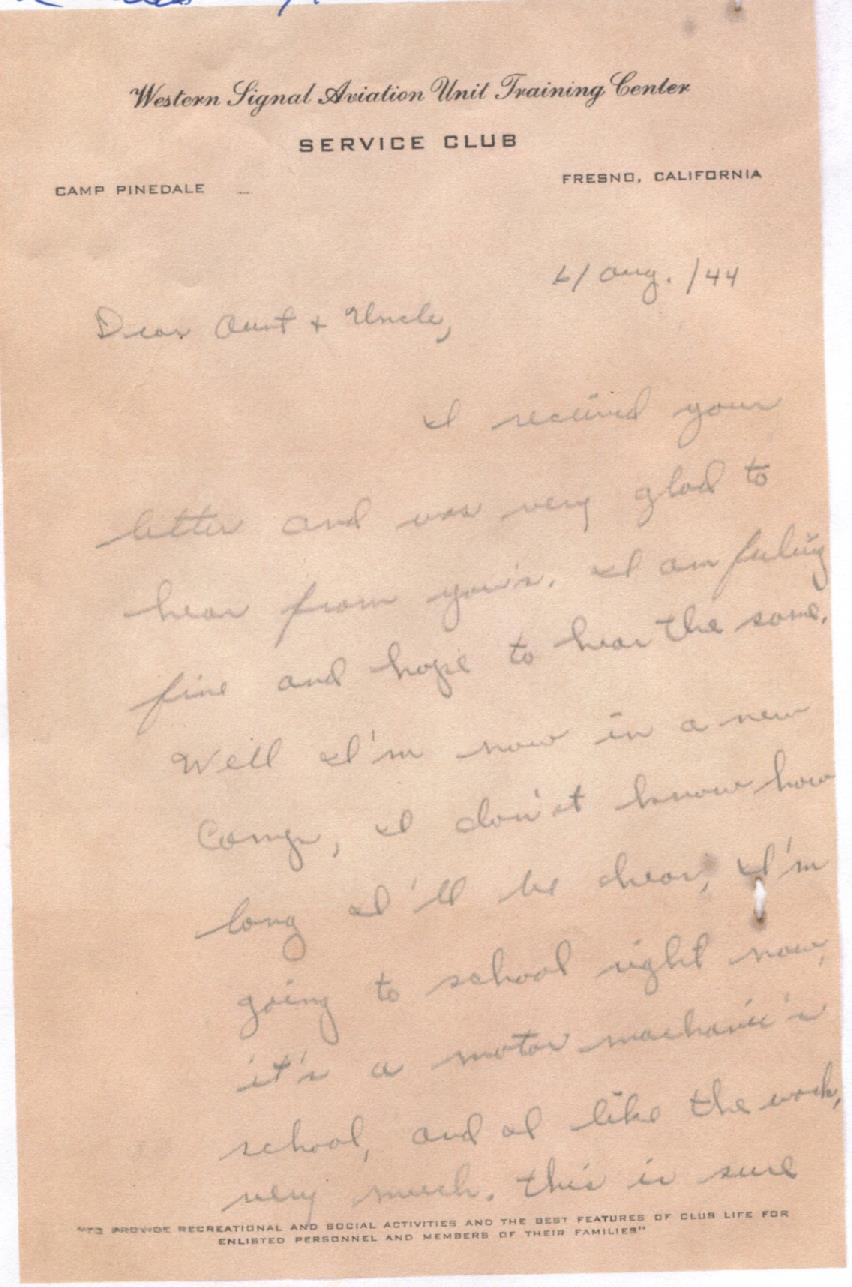 Western Signal Aviation Unit Training Center
SERVICE CLUB
CAMP PINEDALE
FRESNO, CALIFORNIA
6/Aug./44
Dear Aunt + Uncle,
I received your
letter and was very glad to
hear from you's. I am feeling
fine and hope to hear the same.
Well I'm now in a new
Camp, I don't know how
long I'll be hear, I'm
going to school right now,
it's a motor machanic's
school, and I like the work,
very much. this is sure
"TO PROVIDE RECREATIONAL AND SOCIAL ACTIVITIES AND THE BEST FEATURES OF CLUB LIFE FOR
ENLISTED PERSONNEL AND MEMBERS OF THEIR FAMILIES"